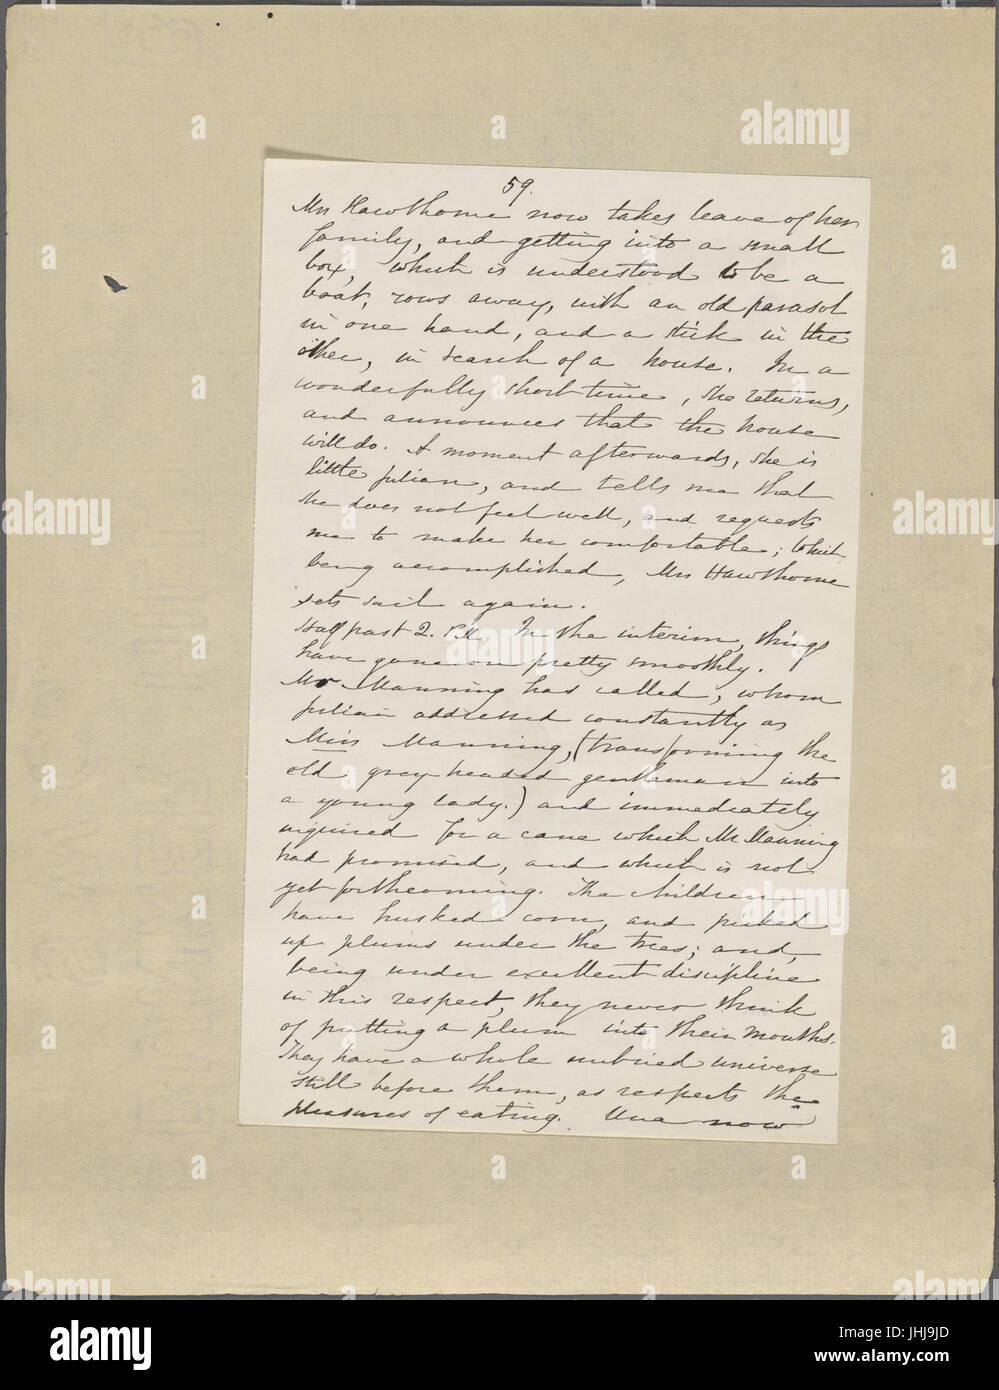 59.
Mrs Hawthorne now takes leave of her
family, and getting into a small
box, which is understood to be a
boat, rows away, with an old parasol
in one hand, and a stick in the
other, in search of a house. In a
wonderfully short time, she returns,
and announces that the house
will do. A moment afterwards, she is
little Julian, and tells me that
she does not feel well, and requests
me to make her comfortable; which
being accomplished, Mrs Hawthorne
sets sail again.
Half past 2. P.M. In the interim, things
have gone on pretty smoothly.
Mr Manning has called, whom
Julian addressed constantly as
Miss Manning, (transforming the
old grey headed gentleman into
a young lady.) and immediately
inquired for a cane which Mr Manning
had promised, and which is not
yet forthcoming. The children
have husked corn, and picked
up plums under the trees; and,
being under excellent discipline
in this respect, they never think
of putting a plum into their mouths.
They have a whole untried universe
still before them, as respects the
pleasures of eating. Una now
alamy
a
alamy
a
a
a
alamy
alamy
alamy
a
a
a
alamy
alamy
alamy
a
a
a
alamy
alamy
alamy
alamy
Image ID: JHJ9JD
www.alamy.com